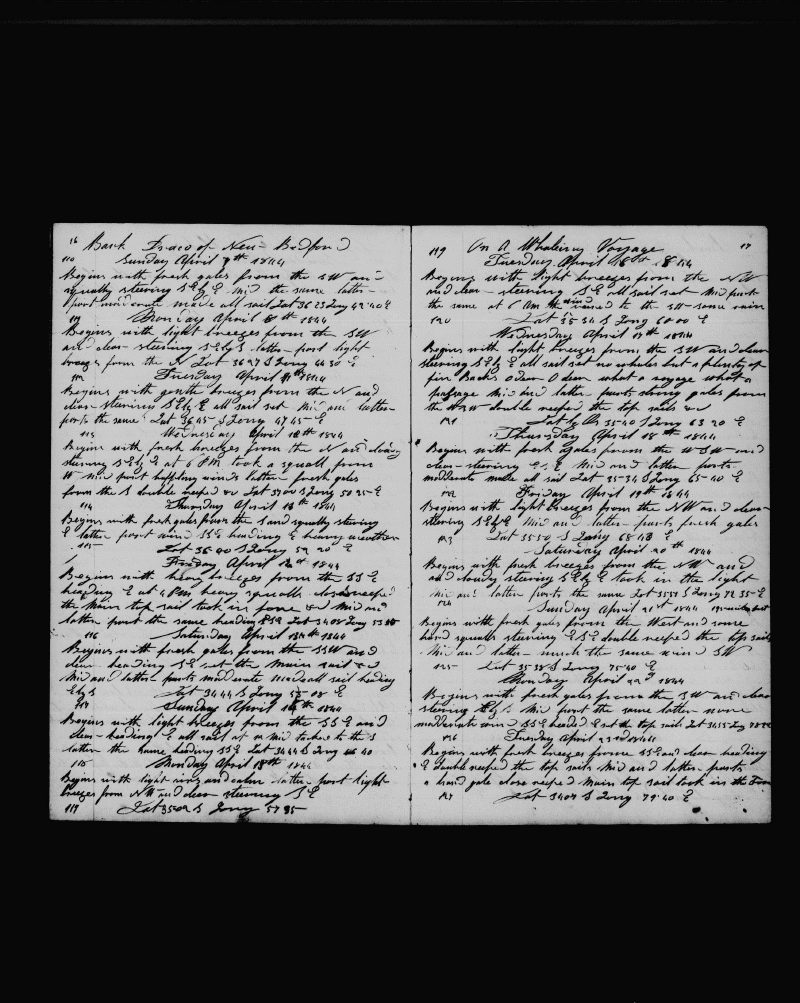 16 Bark Draco of New-Bedford
110 Sunday April 7th 1844
Begins with fresh gales from the SW and
squally steering S E by E Mid the same latter-
port moderate made all sail Lat 36 23 Long 42-40 E
111 Monday April 8th 1844
Begins with light breezes from the SW
and clear steering S E by S latter-port light
breezes from the N Lat 36 27 S Long 44 30 E
112 Tuesday April 9th 1844
Begins with gentle breezes from the N and
clear steering S E by E all sail set Mid and latter-
ports the same Lat 36 45 S Long 47 45- E
113 Wednesday April 10th 1844
Begins with fresh breezes from the N and clear
steering S E by E at 6 PM took a squall from
W Mid port baffling winds latter fresh gales
from the S double reefed &c Lat 37 00 S Long 50 25- E
114 Thursday April 11th 1844
Begins with fresh gales from the S and squally steering
E latter port wind SSE heading E heavy weather
115 Lat 36-00 S Long 52 20 E
Friday April 12th 1844
Begins with heavy breezes from the SSE
heading E at 4 PM heavy squalls close reefed
the Main top sail took in fore &c Mid and
latter port the same heading Lat 34 08 Long 53 38
116 Saturday April 13th 1844
Begins with fresh gales from the SSW and
clear heading S E set the main sail &c
Mid and latter-ports moderate made all sail heading
E by S Lat 34 44 S Long 55-08 E
Sunday April 14th 1844
Begins with light breezes from the SSE and
clear-heading E all sail set at Mid tacked to the S
latter the same heading SSE Lat 34 44 S Long 40
Monday April 15th 1844
Begins with light airs and calm latter-port light-
breezes from NW and clear steering S E
117 Lat 35 02 S Long 57 35
119 On A Whaleing Voyage 17
Tuesday April 16th 1844
Begins with light breezes from the NW
and clear- steering S E all sail set Mid port
the same at 1 Am the wind veered to the SW some rain
120 Lat 35 34 S Long 60 00 E
Wednesday April 17th 1844
Begins with light breezes from the SW and clear
steering S E by E all sail set no whales but a plenty of
fin Backs O dear O dear what a voyage what a
passage Mid and latter ports strong gales from
the double reefed the top sails &c
121 Lat by Ob 35-40 S Long 63 20 E
Thursday April 18th 1844
Begins with fresh gales from the WSW and
clear-steering E S E Mid and latter ports
moderate made all sail Lat 35-34 S Long 65-40 E
122 Friday April 19th 1844
Begins with light breezes from the NW and clear-
steering S E by E Mid and latter-ports fresh gales
123 Lat 35 50 S Long 68 43 E
Saturday April 20th 1844
Begins with fresh breezes from the NW and
and cloudy steering S E by E took in the light
Mid and latter ports the same Lat 35 53 S Long 72 35- E
124 Sunday April 21st 1844
Begins with fresh gales from the West and some
hard squalls steering E S E double reefed the top sails
Mid and latter- much the same wind SW
125 Lat 35 38 S Long 75-40 E
Monday April 22d 1844
Begins with fresh gales from the SW and clear
steering E by S Mid port the same latter more
moderate wind SSE headed E set the top sails Lat 34 55 Long
126 Tuesday April 23rd 1844
Begins with fresh breezes from SSE and clear heading
E double reefed the top sails Mid and latter-ports
a hard gale close reefed Main top sail took in the Fore
127 Lat 34 07 S Long 79-40 E